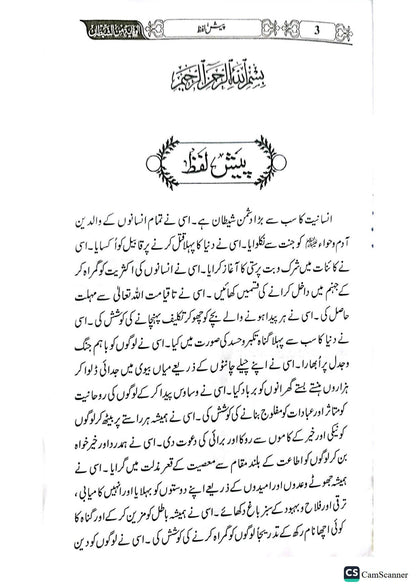 3
پیش لفظ
بسم اللہ الرحمن الرحیم
پیش لفظ
انسانیت کا سب سے بڑا دشمن شیطان ہے۔ اسی نے تمام انسانوں کے والدین
آدم وحواء کو جنت سے نکلوایا۔ اسی نے دنیا کا پہلا قتل کرنے پر قابیل کو اُکسایا۔ اسی
نے کائنات میں شرک وبت پرستی کا آغاز کرایا۔ اسی نے انسانوں کی اکثریت کو گمراہ کر
کے جہنم میں داخل کرانے کی قسمیں کھائیں۔ اسی نے تا قیامت اللہ تعالیٰ سے مہلت
حاصل کی۔ اسی نے ہر پیدا ہونے والے بچے کو چھو کر تکلیف پہنچانے کی کوشش کی۔ اسی
نے دنیا کا سب سے پہلا گناہ تکبر وحسد کی صورت میں کیا۔ اسی نے لوگوں کو باہم جنگ
وجدل پر اُبھارا۔ اسی نے اپنے چیلے چانٹوں کے ذریعے میاں بیوی میں جدائی ڈلوا کر
ہزاروں ہنستے بستے گھرانوں کو برباد کیا۔ اسی نے وساوس پیدا کر کے لوگوں کی روحانیت
کو متاثر اور عبادات کو مفلوج بنانے کی کوشش کی۔ اسی نے ہمیشہ ہر راستے پر بیٹھ کر لوگوں
کو نیکی اور خیر کے کاموں سے روکا اور برائی کی دعوت دی۔ اسی نے ہمدرد اور خیر خواہ
بن کر لوگوں کو اطاعت کے بلند مقام سے معصیت کے قعر مذلت میں گرایا۔ اسی نے
ہمیشہ جھوٹے وعدوں اور امیدوں کے ذریعے اپنے دوستوں کو بہلایا اور انہیں کامیابی،
ترقی اور فلاح و بہبود کے سبز باغ دکھائے۔ اسی نے ہمیشہ باطل کو مزین کر کے اور گناہ کا
کوئی اچھا نام رکھ کے تدریجاً لوگوں کو گمراہ کرنے کی کوشش کی۔ اسی نے لوگوں کو دین
CS CamScanner